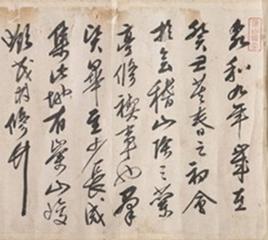 永和九年歲在
癸丑暮春之初會
於會稽山陰之蘭
亭脩禊事也羣
賢畢至少長咸
集此地有崇山峻
領茂林脩竹